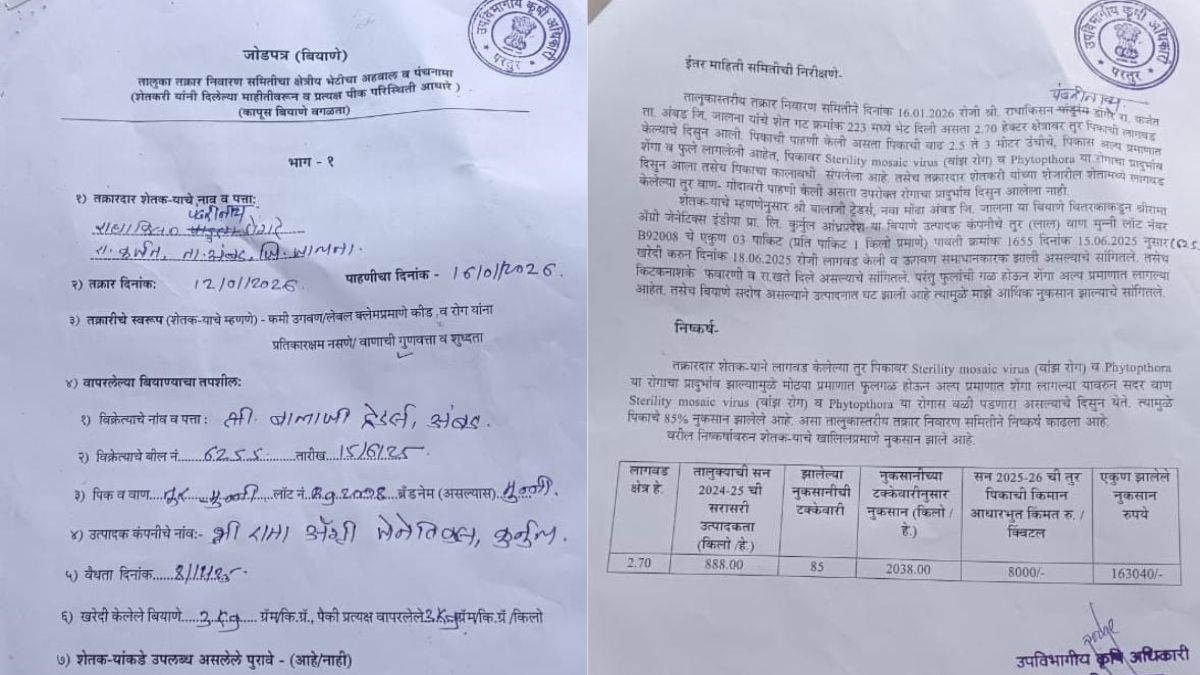 उपविभागीय कृषी अधिकारी
परतुर
जोडपत्र (बियाणे)
तालुका तक्रार निवारण समितीचा क्षेत्रीय भेटीचा अहवाल व पंचनामा
(शेतकरी यांनी दिलेल्या माहीतीवरून व प्रत्यक्ष पीक परिस्थिती आधारे )
(कापूस बियाणे वगळता)
भाग - १
१) तक्रारदार शेतक-याचे नाव व पत्ता:
पंढरीनाथ
राधाकिसन डोंगरे
रा. कर्जत, ता. अंबड, जि. जालना.
२) तक्रार दिनांक: 12/01/2026 पाहणीचा दिनांक - 16/01/2026.
३) तक्रारीचे स्वरूप (शेतक-याचे म्हणणे) - कमी उगवण/लेबल क्लेमप्रमाणे कीड ,व रोग यांना
प्रतिकारक्षम नसणे/ वाणाची गुणवत्ता व शुध्दता
४) वापरलेल्या बियाण्याचा तपशील:
१) विक्रेत्याचे नांव व पत्ता : श्री. बालाजी ट्रेडर्स, अंबड.
२) विक्रेत्याचे बील नं. 6255 तारीख 15/6/25
३) पिक व वाण....तुर मुन्नी....लॉट नं. B92008 ब्रँडनेम (असल्यास) मुन्नी.
४) उत्पादक कंपनीचे नांव:- श्री रामा ॲग्री जेनेटिक्स, कुर्नुल.
५) वैधता दिनांक
६) खरेदी केलेले बियाणे.....3 Kg.... ग्रॅम/कि.ग्रॅ., पैकी प्रत्यक्ष वापरलेले 3 Kg ग्रॅम/कि.ग्रॅ /किलो
७) शेतक-यांकडे उपलब्ध असलेले पुरावे - (आहे/नाही)
उपविभागीय कृषी अधिकारी
परतुर
ईतर माहिती समितीची निरीक्षणे-
पंढरीनाथ
तालुकास्तरीय तक्रार निवारण समितीने दिनांक 16.01.2026 रोजी श्री. राधाकिसन डोंगरे रा. कर्जत
ता. अंबड जि. जालना यांचे शेत गट क्रमांक 223 मध्ये भेट दिली असता 2.70 हेक्टर क्षेत्रावर तुर पिकाची लागवड
केल्याचे दिसुन आली. पिकाची पाहणी केली असता पिकाची वाढ 2.5 ते 3 मीटर उंचीचे, पिकास अल्प प्रमाणात
शेंगा व फुले लागलेली आहेत, पिकावर Sterility mosaic virus (वांझ रोग) व Phytopthora या रोगाचा प्रादुर्भाव
दिसुन आला तसेच पिकाचा कालावधी संपलेला आहे. तसेच तक्रारदार शेतकरी यांच्या शेजारील शेतामध्ये लागवड
केलेल्या तुर वाण- गोदावरी पाहणी केली असता उपरोक्त रोगाचा प्रादुर्भाव दिसुन आलेला नाही.
शेतक-याचे म्हणणेनुसार श्री बालाजी ट्रेडर्स, नवा मोंढा अंबड जि. जालना या बियाणे वितरकाकडुन श्रीरामा
ॲग्रो जेनेटिक्स इंडीया प्रा. लि. कुर्नुल आंध्रप्रदेश या बियाणे उत्पादक कंपनीचे तुर (लाल) वाण मुन्नी लॉट नंबर
B92008 चे एकुण 03 पाकिट (प्रति पाकिट 1 किलो प्रमाणे) पावती क्रमांक 1655 दिनांक 15.06.2025 नुसार
खरेदी करुन दिनांक 18.06.2025 रोजी लागवड केली व ऊगवण समाधानकारक झाली असल्याचे सांगितले. तसेच
किटकनाशके फवारणी व रा.खते दिले असल्याचे सांगितले. परंतु फुलांची गळ होऊन शेंगा अल्प प्रमाणात लागल्या
आहेत. तसेच बियाणे सदोष असल्याने उत्पादनात घट झाली आहे त्यामुळे माझे आर्थिक नुकसान झाल्याचे सांगितले.
निष्कर्ष-
तक्रारदार शेतक-याने लागवड केलेल्या तुर पिकावर Sterility mosaic virus (वांझ रोग) व Phytopthora
या रोगाचा प्रादुर्भाव झाल्यामुळे मोठया प्रमाणात फुलगळ होऊन अल्प प्रमाणात शेंगा लागल्या यावरुन सदर वाण
Sterility mosaic virus (वांझ रोग) व Phytopthora या रोगास बळी पडणारा असल्याचे दिसुन येते. त्यामुळे
पिकाचे 85% नुकसान झालेले आहे. असा तालुकास्तरीय तक्रार निवारण समितीने निष्कर्ष काढला आहे.
वरील निष्कर्षावरुन शेतक-याचे खालिलप्रमाणे नुकसान झाले आहे.
लागवड क्षेत्र हे. | तालुक्याची सन 2024-25 ची सरासरी उत्पादकता (किलो /हे.) | झालेल्या नुकसानीची टक्केवारी | नुकसानीच्या टक्केवारीनुसार नुकसान (किलो / हे.) | सन 2025-26 ची तुर पिकाची किमान आधारभुत किंमत रु. / क्विंटल | एकुण झालेले नुकसान रुपये
2.70 | 888.00 | 85 | 2038.00 | 8000/- | 163040/-
उपविभागीय कृषि अधिकारी